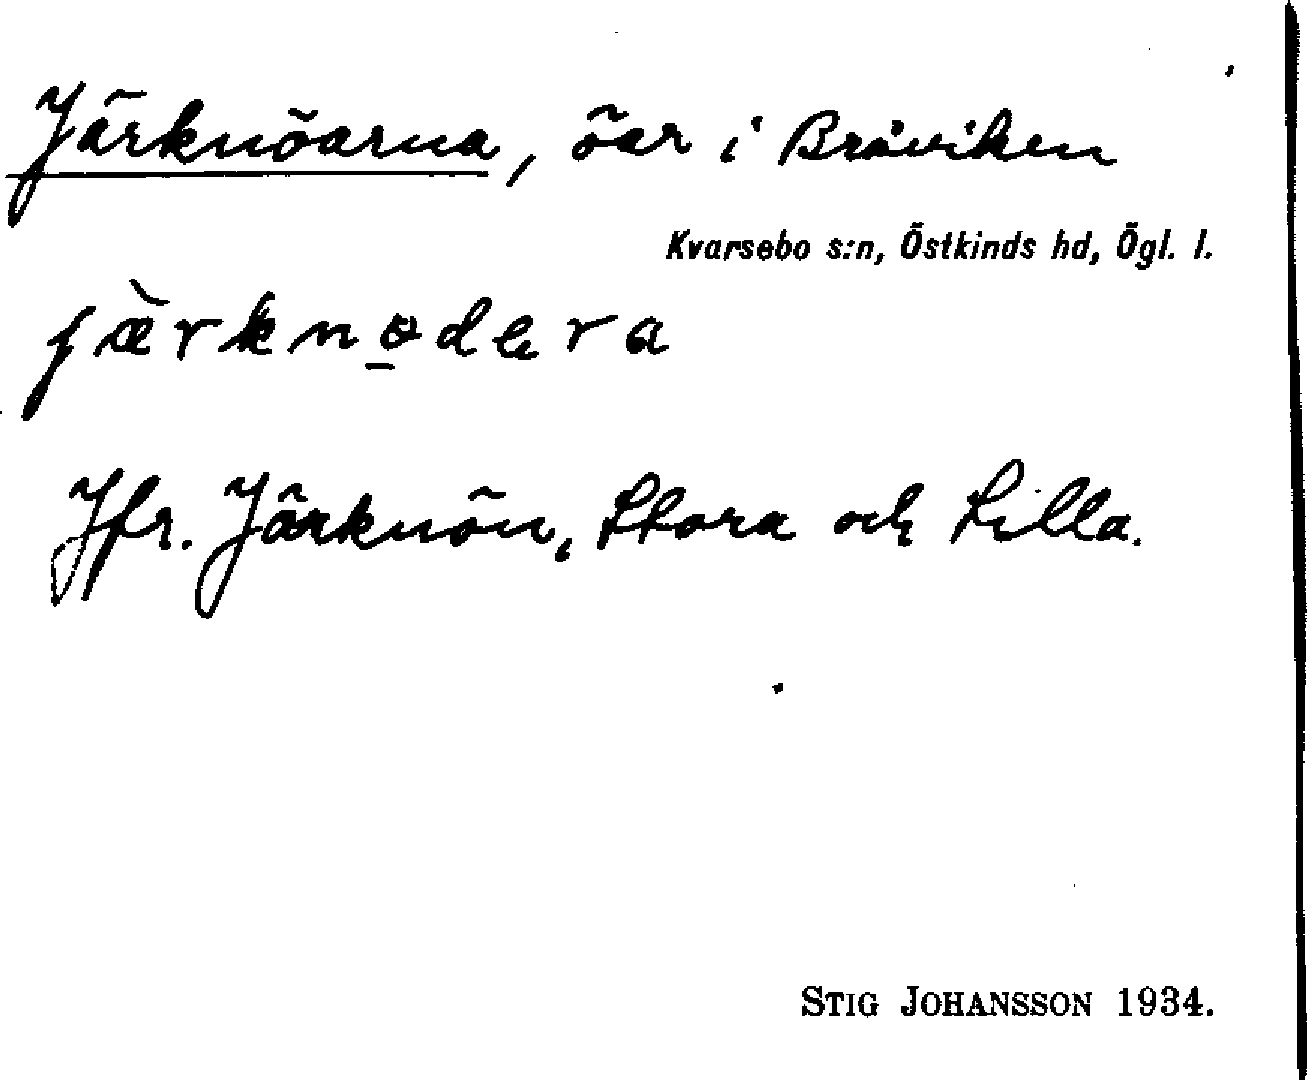 Järknöarna, öar i Bråviken
Kvarsebo s:n, Östkinds hd, Ögl. l.
Jfr. Järknön, Stora och Lilla.
STIG JOHANSSON 1934.